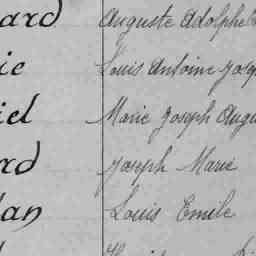 ard Auguste Adolphe
ie Louis Antoine Jose
iel Marie Joseph Augu
rd Joseph Marie
lan Louis Emile